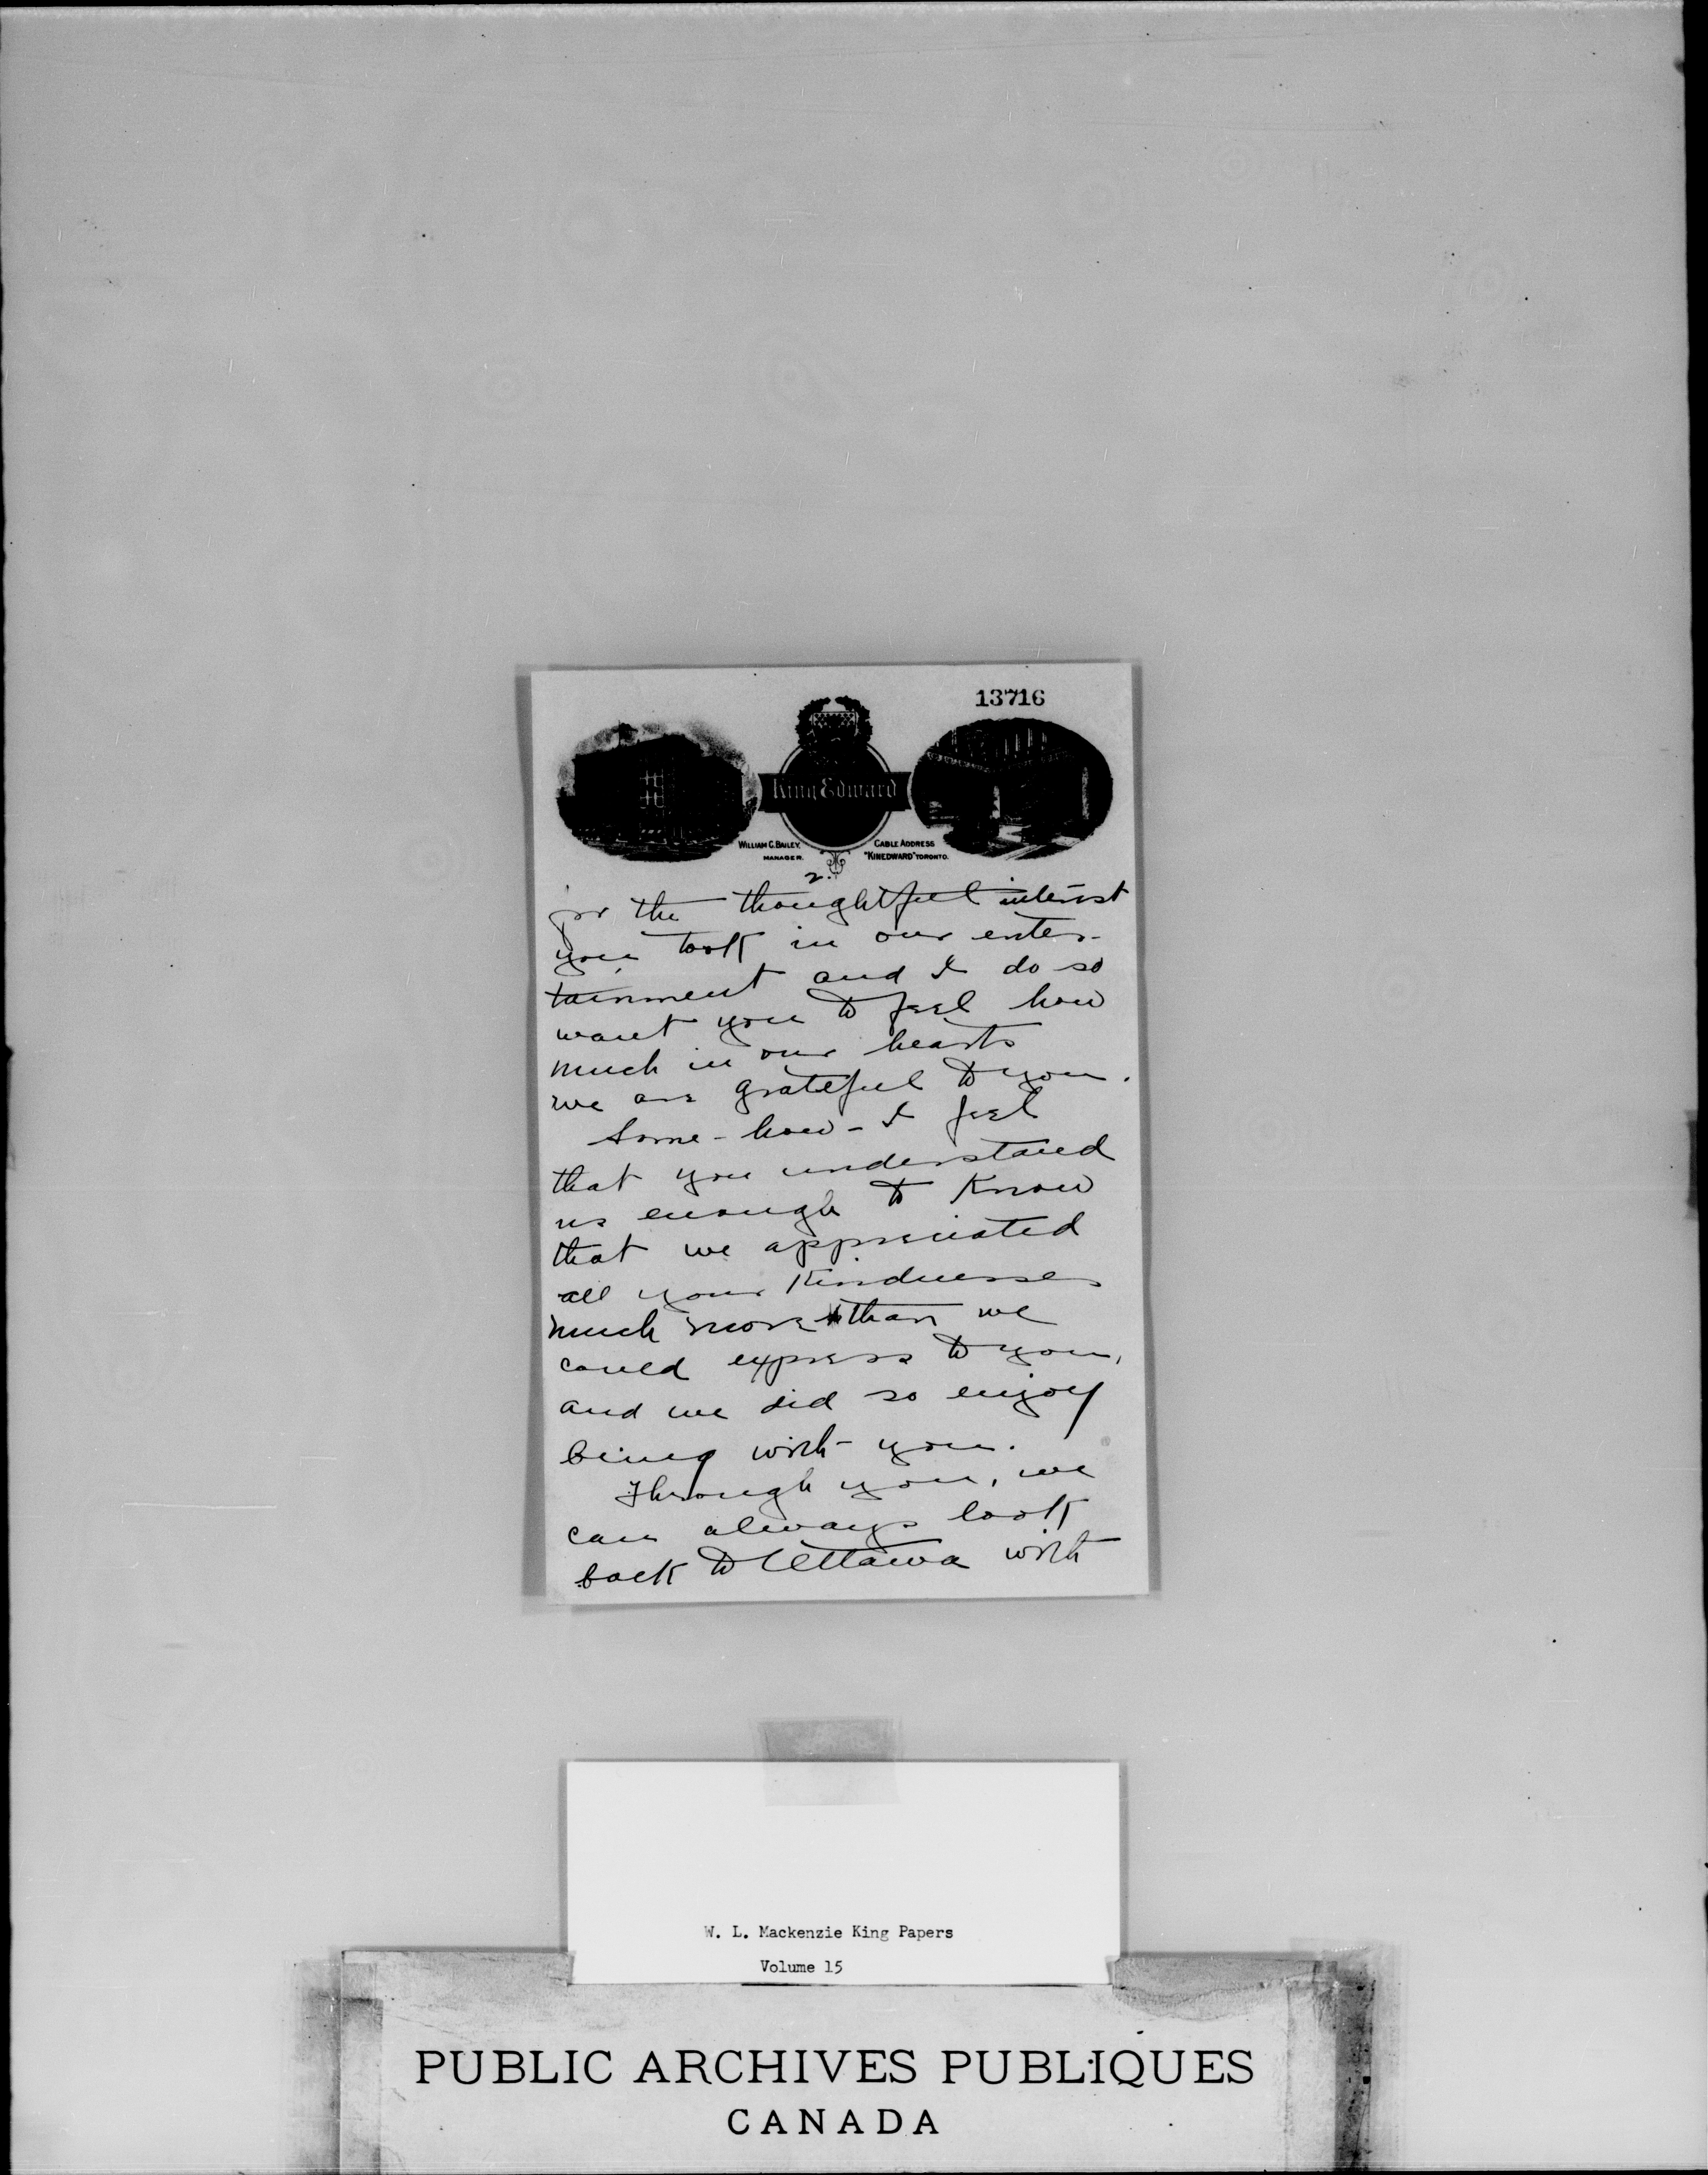 13716
King Edward
WILLIAM G. BAILEY,
MANAGER.
CABLE ADDRESS
"KINEDWARD" TORONTO.
2.
for the thoughtful interest
you took in our enter-
tainment and I do so
want you to feel how
much in our hearts
we are grateful to you.
Some-how-I feel
that you understand
us enough to know
that we appreciated
all your kindnesses
much more than we
could express to you,
and we did so enjoy
being with you.
Through you, we
can always look
back to Ottawa with
W. L. Mackenzie King Papers
Volume 15
PUBLIC ARCHIVES PUBLIQUES
CANADA